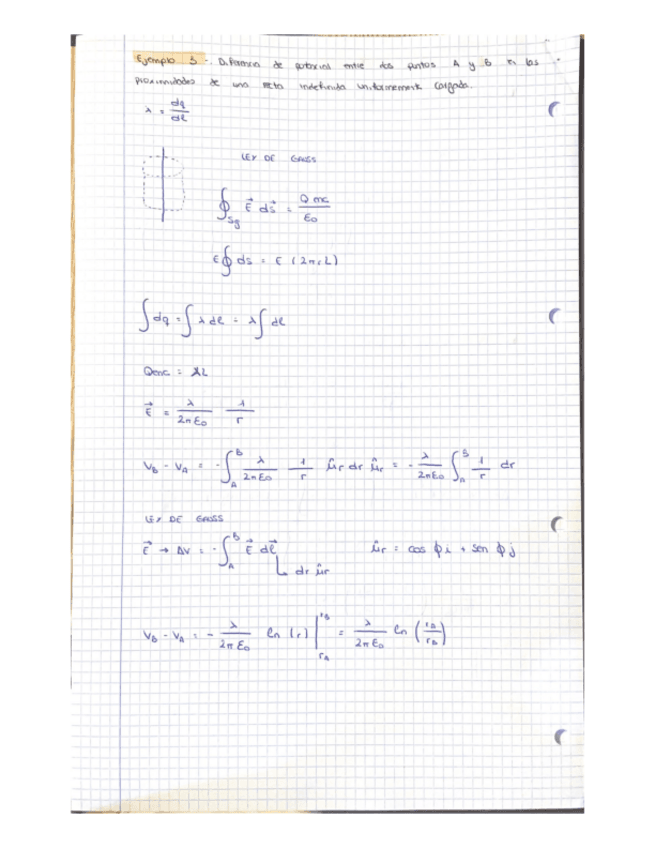 Ejemplo 3.- Diferencia de potencial entre dos puntos A y B en las
proximidades de una recta indefinida uniformemente cargada.
λ = dq/dl
LEY DE GAUSS
∮Sg E⃗ ds⃗ = Qenc/ε0
E∮ ds = E (2πrL)
∫dq = ∫λ dl = λ∫dl
Qenc = λL
E⃗ = λ/2πε0 1/r
VB - VA = -∫A^B λ/2πε0 1/r ûr dr ûr = - λ/2πε0 ∫A^B 1/r dr
LEY DE GAUSS
E⃗ → ΔV = -∫A^B E⃗ dl⃗ ûr = cos ϕi + sen ϕj
↳ dr ûr
VB - VA = - λ/2πε0 ln (r)|rA^rB = λ/2πε0 ln (rA/rB)